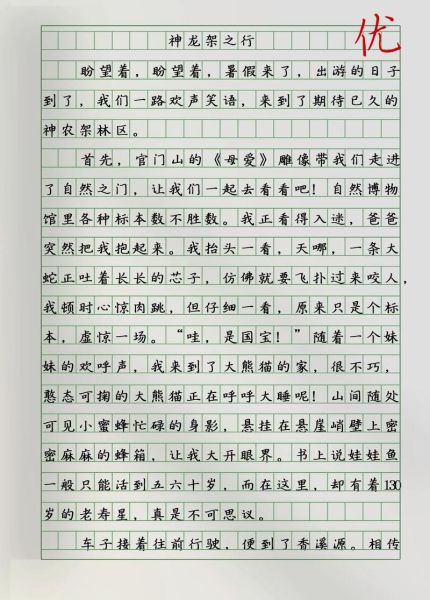 优
神龙架之行
盼望着，盼望着，暑假来了，出游的日子
到了，我们一路欢声笑语，来到了期待已久的
神农架林区。
首先，官门山的《母爱》雕像带我们走进
了自然之门，让我们一起去看看吧！自然博物
馆里各种标本数不胜数。我正看得入迷，爸爸
突然把我抱起来。我抬头一看，天哪，一条大
蛇正吐着长长的芯子，仿佛就要飞扑过来咬人，
我顿时心惊肉跳，但仔细一看，原来只是个标
本，虚惊一场。“哇，是国宝！”随着一个妹
妹的欢呼声，我来到了大熊猫的家，很不巧，
憨态可掬的大熊猫正在呼呼大睡呢！山间随处
可见小蜜蜂忙碌的身影，悬挂在悬崖峭壁上密
密麻麻的蜂箱，让我大开眼界。书上说娃娃鱼
一般只能活到五六十岁，而在这里，却有着130
岁的老寿星，真是不可思议。
车子接着往前行驶，便到了香溪源。相传